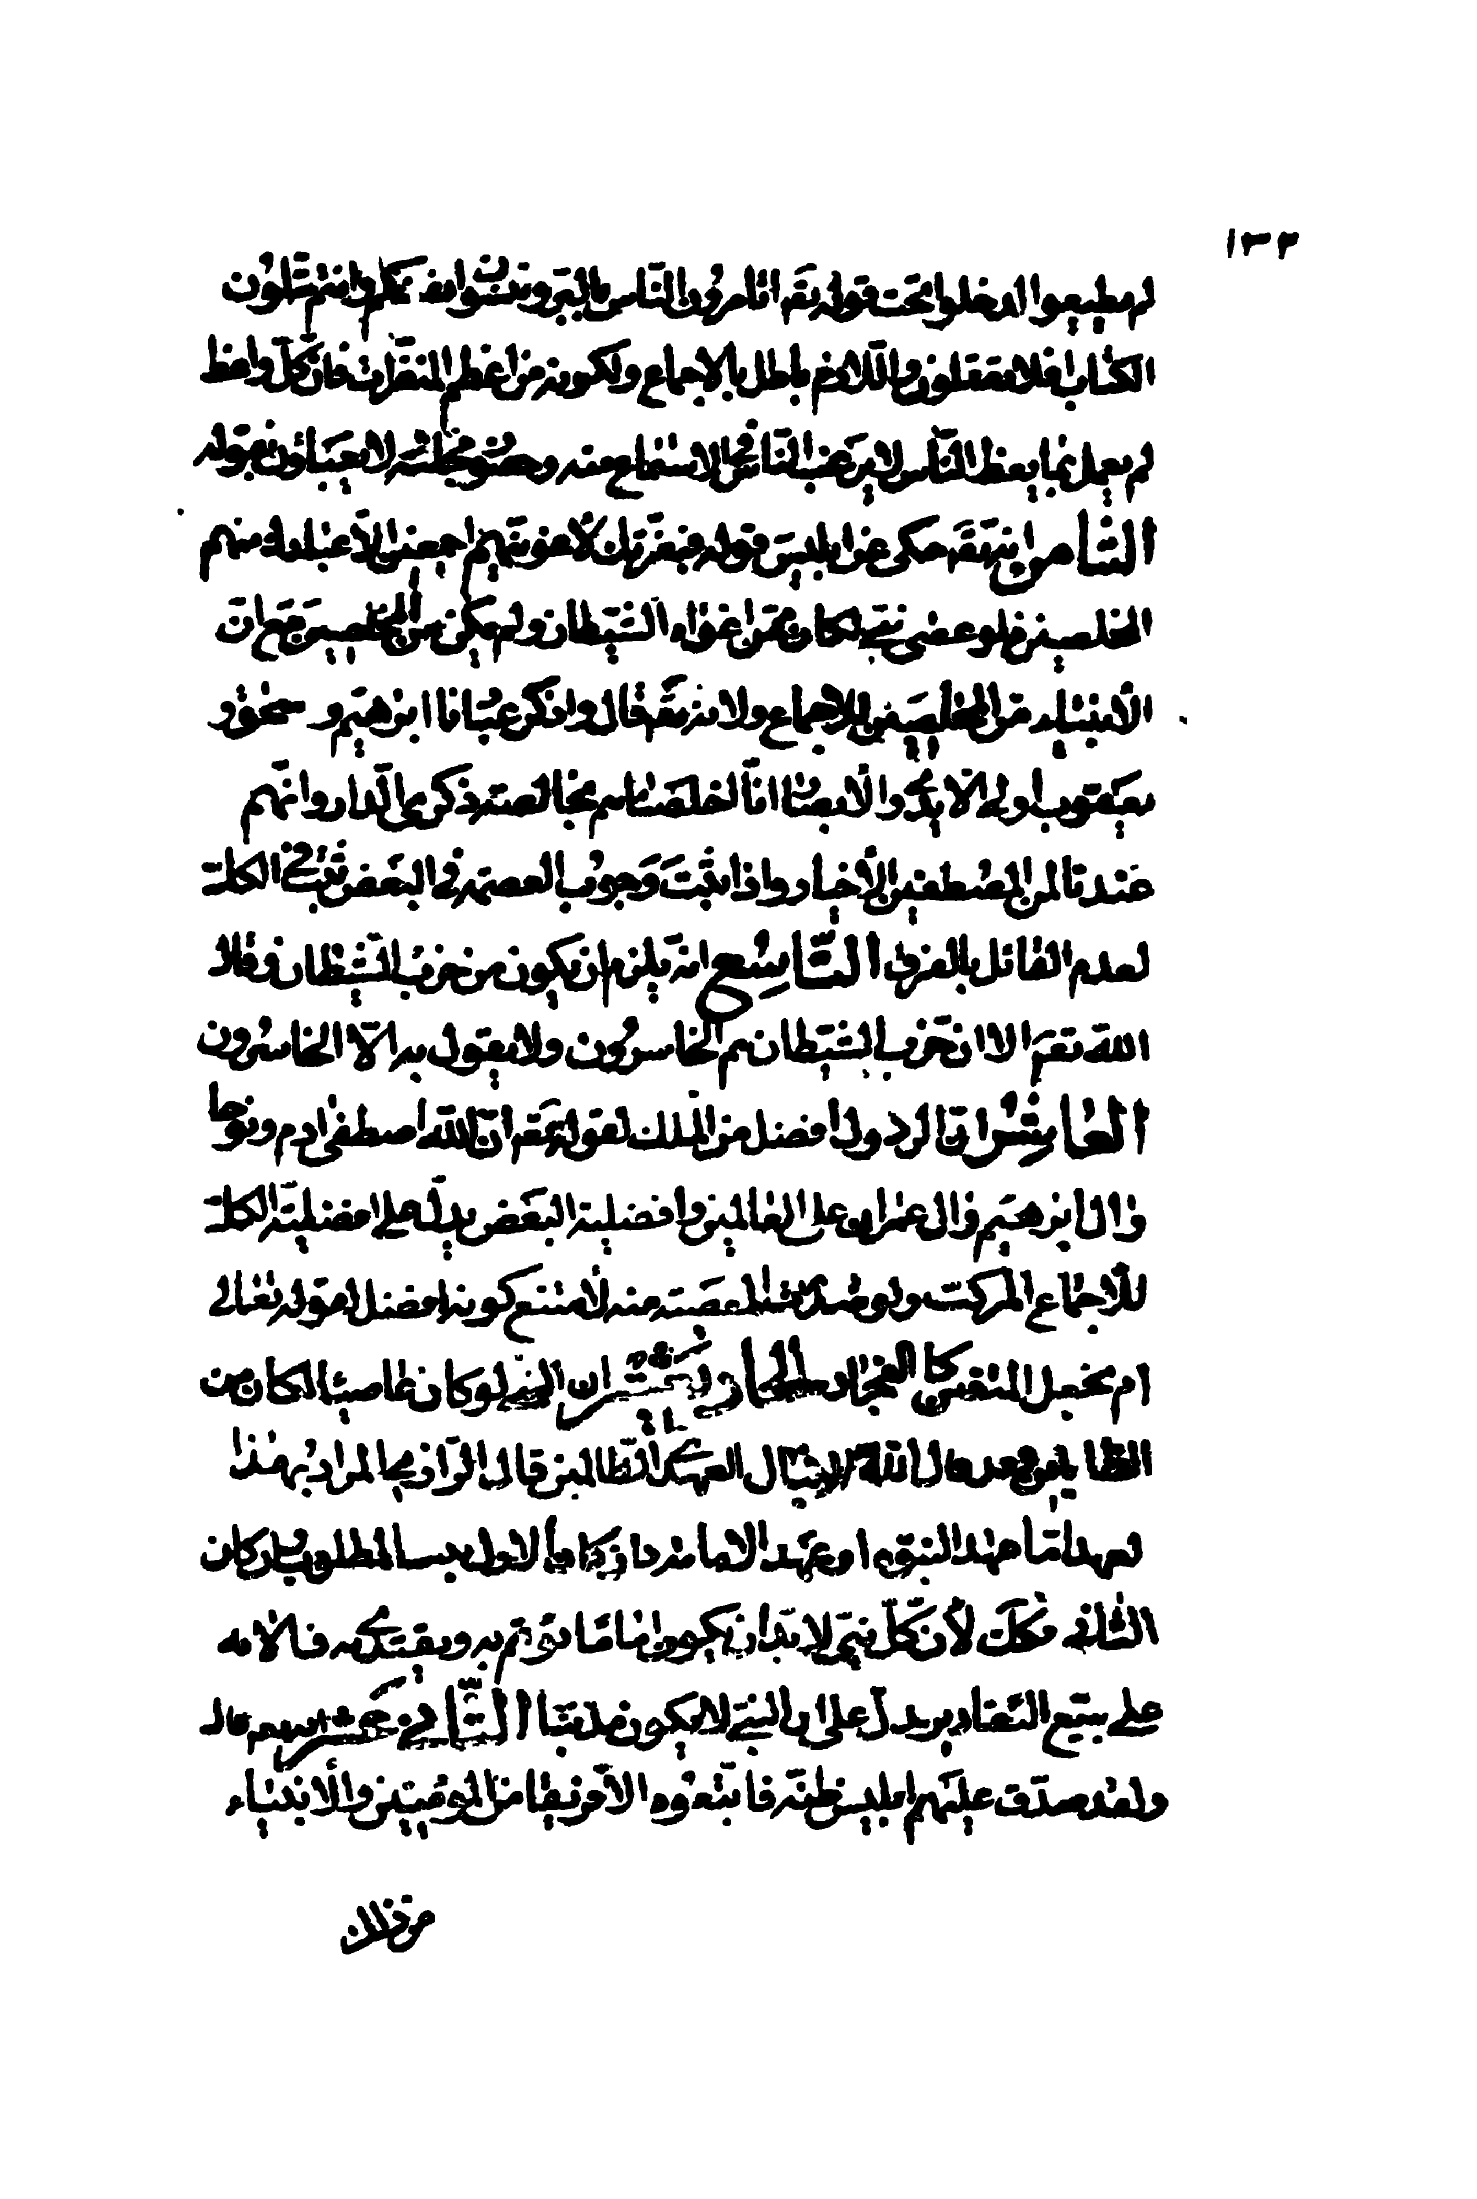 ١٣٣
لم يطيعوا الدخلوا تحت قوله تقم اتامرون الناس بالبر وتنسون انفسكم وانتم تتلون
الكتاب افلا تعقلون واللازم باطل بالاجماع ولكونه من اعظم المنفرات فان كل واعظ
لم يعمل بما يعظ الناس لا يرغب الناس في الاستماع منه وحضور مجلسه لا يعباؤن بقوله
الثامن انه تقم حكى عن ابليس قوله فبعزتك لاغوينهم اجمعين الا عبادك منهم
المخلصين فلو عصى نبي لكان ممن اغواه الشيطان ولم يكن من المخلصين مع ان
الانبياء من المخلصين للاجماع ولانه تقم قال واذكر عبادنا ابرهيم و سحق و
يعقوب اولى الايدي والابصار انا اخلصناهم بخالصة ذكرى الدار وانهم
عندنا لمن المصطفين الاخيار واذا ثبت وجوب العصمة في البعض ثبت في الكل
لعدم القائل بالفرق التاسع انه يلزم ان يكون من حزب الشيطان وقال
الله تقم الا ان حزب الشيطان هم الخاسرون ولا يقول به الا الخاسرون
العاشر ان الرسول افضل من الملك لقوله تقم ان الله اصطفى ادم ونوحا
وال ابرهيم وال عمران على العالمين وافضلية البعض يدل على افضلية الكل
للاجماع المركب ولو صدرت المعصية منه لامتنع كونه افضل لقوله تعالى
ام نجعل المتقين كالفجار الحادي عشر ان النبي لو كان عاصيا لكان من
الظالمين وقد قال الله لا ينال عهدي الظالمين قال الرازي المراد بهذا
العهد اما عهد النبوة او عهد الامامة فان كان الاول ثبت المطلوب وان كان
الثاني فكك لان كل نبي لا بد ان يكون اماما يؤتم به ويقتدى به فالاية
على جميع التقادير يدل على ان النبي لا يكون مذنبا الثاني عشر انهم قال
ولقد صدق عليهم ابليس ظنه فاتبعوه الا فريقا من المؤمنين والانبياء
من ذلك